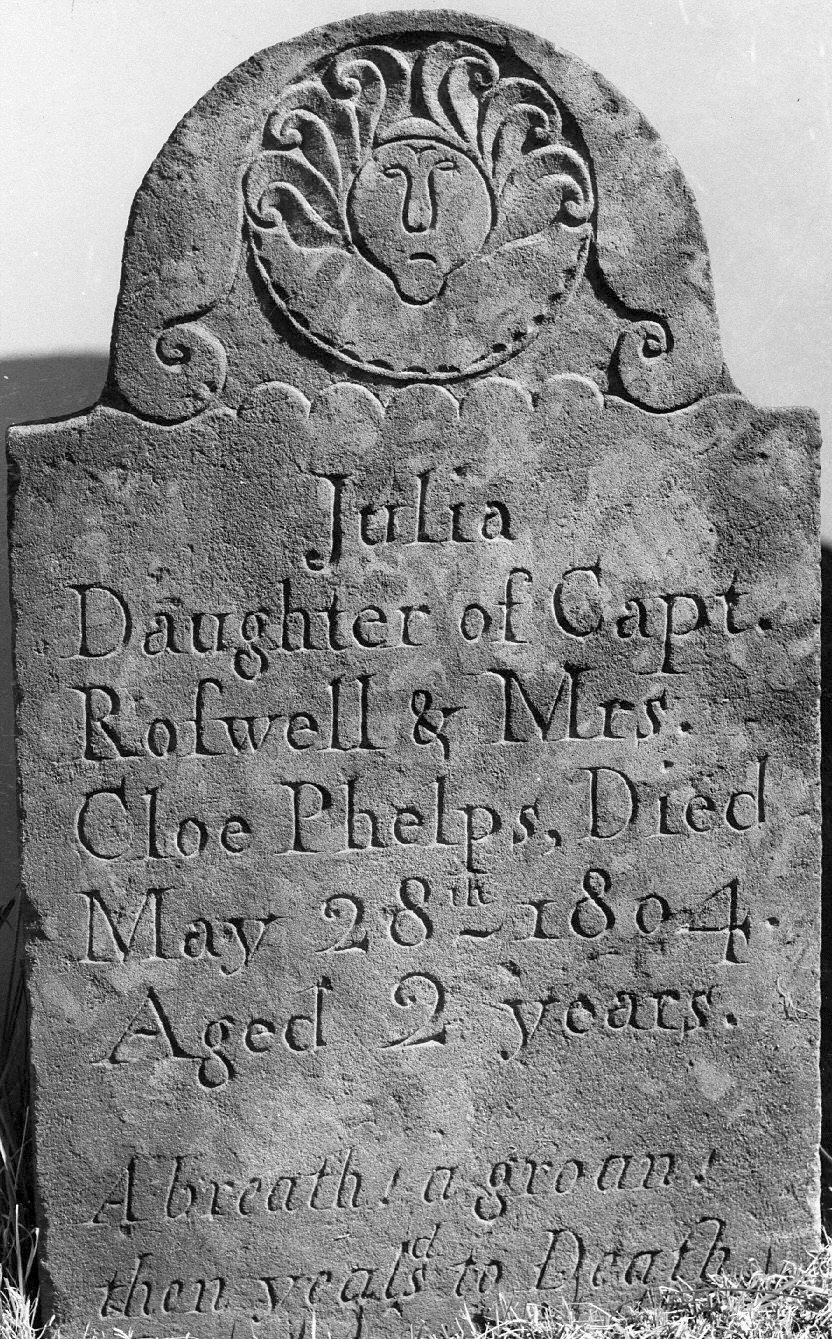 Julia
Daughter of Capt.
Roſwell & Mrs.
Cloe Phelps, Died
May 28th - 1804.
Aged 2 years.
A breath! a groan!
then yeal'd to Death